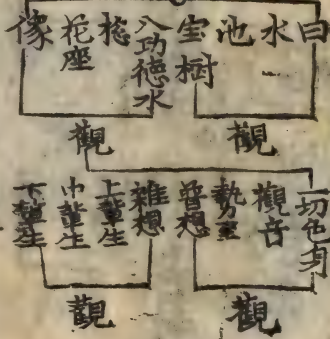 日
水
池
宝樹
八功德水
揔
花座
像
觀
觀
一切色身
觀音
勢至
普想
雜想
上輩生
中輩生
下輩生
觀
觀